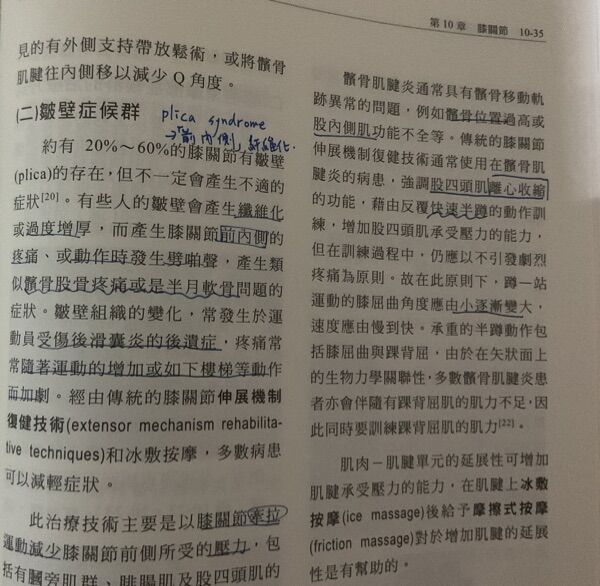 第 10 章　膝關節　10-35
見的有外側支持帶放鬆術，或將髕骨
肌腱往內側移以減少 Q 角度。
(二)皺壁症候群
plica syndrome
→「前內側」纖維化.
約有 20%～60%的膝關節有皺壁
(plica)的存在，但不一定會產生不適的
症狀[20]。有些人的皺壁會產生纖維化
或過度增厚，而產生膝關節前內側的
疼痛、或動作時發生劈啪聲，產生類
似髕骨股骨疼痛或是半月軟骨問題的
症狀。皺壁組織的變化，常發生於運
動員受傷後滑囊炎的後遺症，疼痛常
常隨著運動的增加或如下樓梯等動作
而加劇。經由傳統的膝關節伸展機制
復健技術(extensor mechanism rehabilita-
tive techniques)和冰敷按摩，多數病患
可以減輕症狀。
此治療技術主要是以膝關節牽拉
運動減少膝關節前側所受的壓力，包
括有膕旁肌群、腓腸肌及股四頭肌的
髕骨肌腱炎通常具有髕骨移動軌
跡異常的問題，例如髕骨位置過高或
股內側肌功能不全等。傳統的膝關節
伸展機制復健技術通常使用在髕骨肌
腱炎的病患，強調股四頭肌離心收縮
的功能，藉由反覆快速半蹲的動作訓
練，增加股四頭肌承受壓力的能力，
但在訓練過程中，仍應以不引發劇烈
疼痛為原則。故在此原則下，蹲－站
運動的膝屈曲角度應由小逐漸變大，
速度應由慢到快。承重的半蹲動作包
括膝屈曲與踝背屈，由於在矢狀面上
的生物力學關聯性，多數髕骨肌腱炎患
者亦會伴隨有踝背屈肌的肌力不足，因
此同時要訓練踝背屈肌的肌力[22]。
肌肉－肌腱單元的延展性可增加
肌腱承受壓力的能力，在肌腱上冰敷
按摩(ice massage)後給予摩擦式按摩
(friction massage)對於增加肌腱的延展
性是有幫助的。